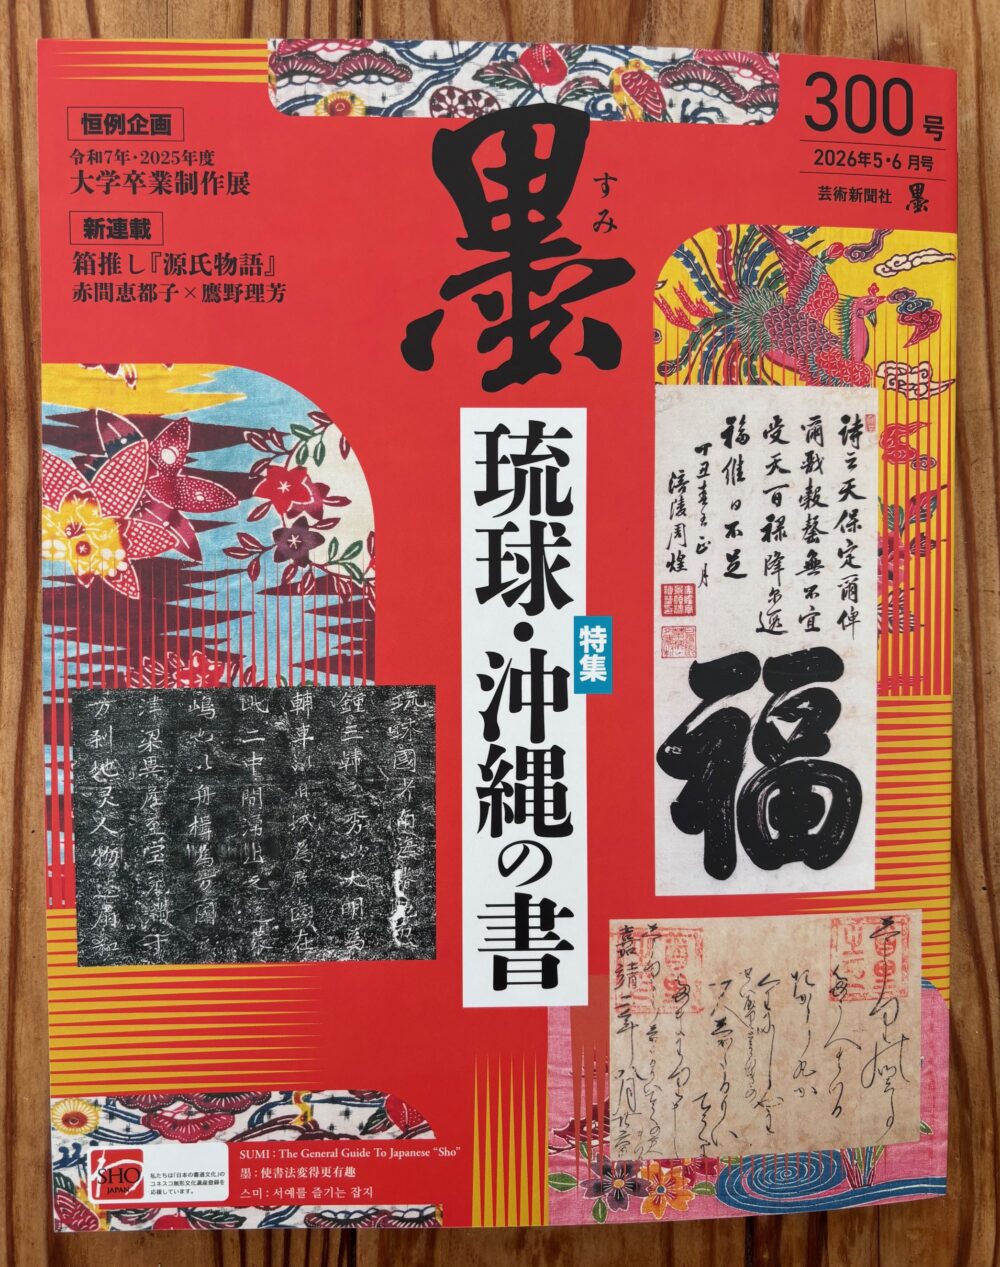 恒例企画
令和7年・2025年度
大学卒業制作展
新連載
箱推し『源氏物語』
赤間恵都子×鷹野理芳
墨
すみ
300号
2026年5・6月号
芸術新聞社 墨
特集
琉球・沖縄の書
詩云天保定爾俾
爾戩穀罄無不宜
受天百禄降爾遐
福維日不足
丁丑春王正月
涪陵周煌
福
琉球國者南海勝地而
鍾三韓之秀以大明為
輔車以日域為脣齒在
此二中間湧出之蓬莱
嶋也以舟楫為万國之
津梁異産至宝充満十
方刹地灵人物遠扇和
嘉靖二年八月
SUMI : The General Guide To Japanese “Sho”
墨 : 使書法変得更有趣
스미 : 서예를 즐기는 잡지
SHO
JAPAN
私たちは「日本の書道文化」の
ユネスコ無形文化遺産登録を
応援しています。